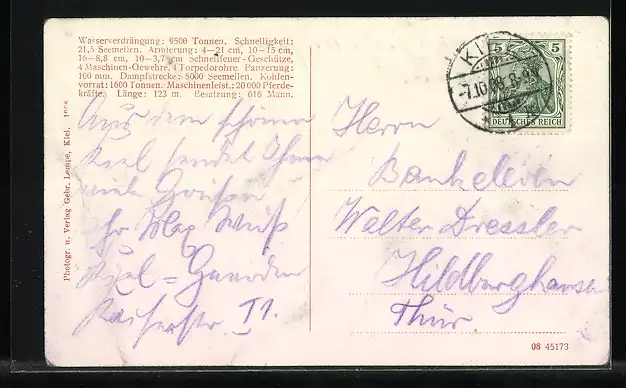 Wasserverdrängung: 9500 Tonnen, Schnelligkeit:
21,5 Seemeilen. Armierung: 4—21 cm, 10—15 cm,
16—8,8 cm, 10—3,7 cm Schnellfeuer-Geschütze,
4 Maschinen-Gewehre. 4 Torpedorohre. Panzerung:
100 mm. Dampfstrecke: 5000 Seemeilen. Kohlen-
vorrat: 1600 Tonnen. Maschinenleist.: 20 000 Pferde-
kräfte. Länge: 123 m. Besatzung: 616 Mann.
Aus dem schönen
Kiel sendet Ihnen
viele Grüße
Ihr Max
Kiel = Gaarden
Kaiserstr.
Photogr. u. Verlag Gebr. Lempe, Kiel. 1908
KIEL
-7.10.08.8-9
5 5
DEUTSCHES REICH
Herrn
Walter Dressler
Hildburghausen
Thür.
08 45173